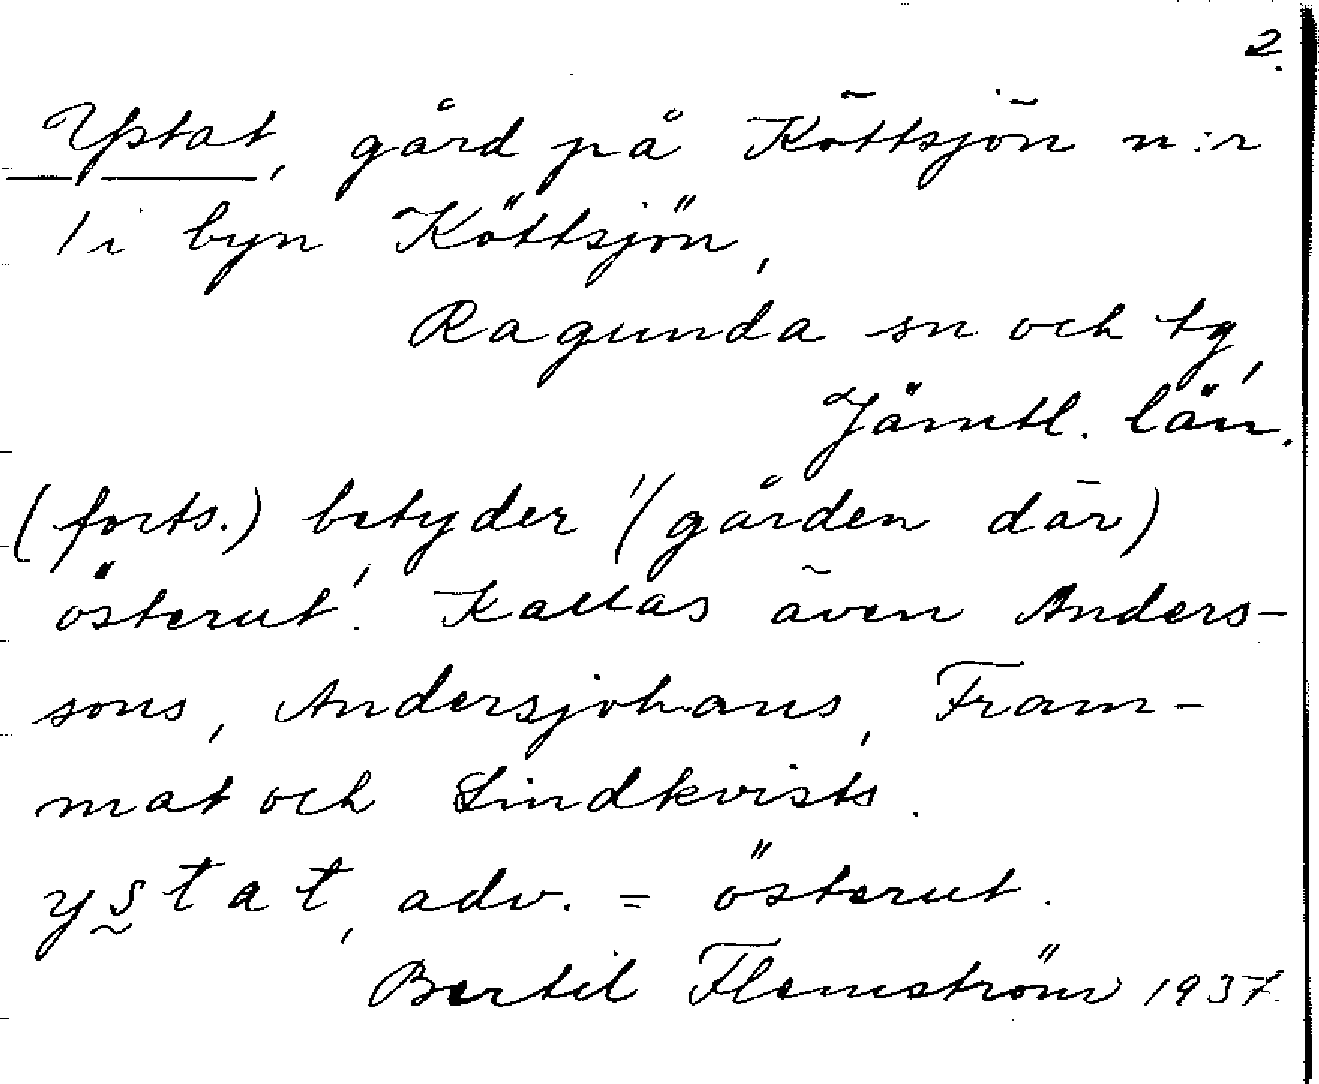 2.
Ystat, gård på Köttsjön n:r
1 i byn Köttsjön,
Ragunda sn och tg,
Jämtl. län.
(forts.) betyder '(gården där)
österut'. Kallas även Anders-
sons, Andersjohans, Fram-
mat och Lindkvists.
ystat, adv. = österut.
Bertil Flemström 1937.